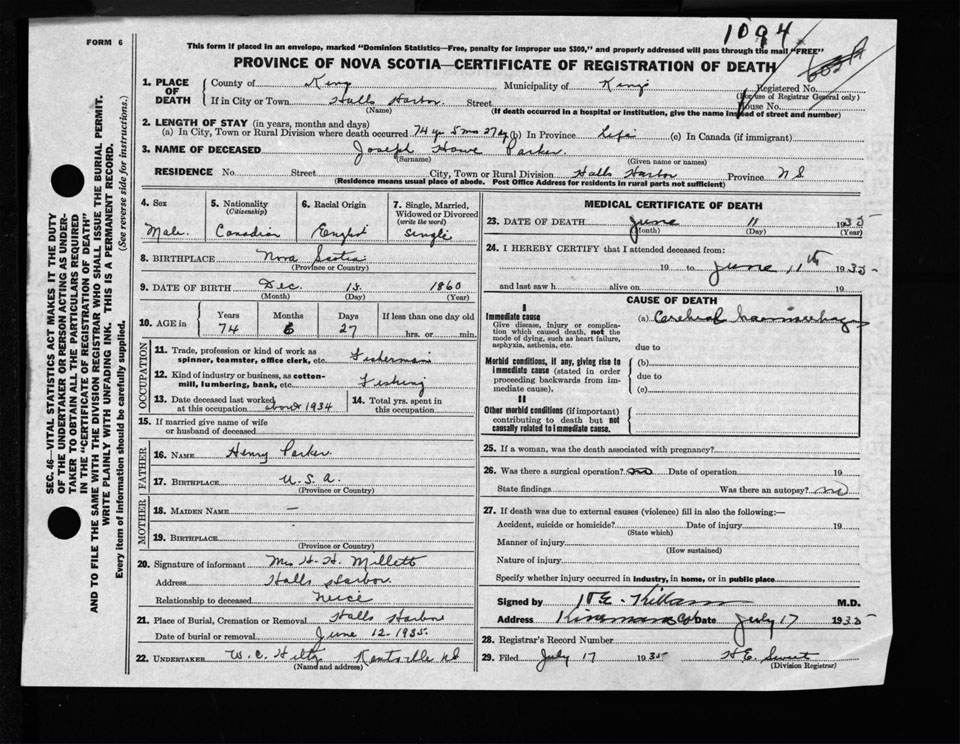 1094
FORM 6
This form if placed in an envelope, marked "Dominion Statistics—Free, penalty for improper use $300," and properly addressed will pass through the mail "FREE"
PROVINCE OF NOVA SCOTIA—CERTIFICATE OF REGISTRATION OF DEATH
1. PLACE OF DEATH County of Kings Municipality of Kings Registered No.
(For use of Registrar General only)
If in City or Town Halls Harbor. Street House No.
(Name) (If death occurred in a hospital or institution, give the name instead of street and number)
2. LENGTH OF STAY (in years, months and days)
(a) In City, Town or Rural Division where death occurred 74 yr 5 mo 27 dy (b) In Province Life (c) In Canada (if immigrant)
3. NAME OF DECEASED Joseph Howe Parker.
(Surname) (Given name or names)
RESIDENCE No. Street City, Town or Rural Division Halls Harbor Province N S
(Residence means usual place of abode. Post Office Address for residents in rural parts not sufficient)
4. Sex Male
5. Nationality (Citizenship) Canadian
6. Racial Origin English
7. Single, Married, Widowed or Divorced (write the word) Single
8. BIRTHPLACE Nova Scotia
(Province or Country)
9. DATE OF BIRTH Dec. 15 1860
(Month) (Day) (Year)
10. AGE in Years Months Days If less than one day old
74 27 hrs. or min.
OCCUPATION
11. Trade, profession or kind of work as spinner, teamster, office clerk, etc. Fisherman
12. Kind of industry or business, as cotton-mill, lumbering, bank, etc. Fishing
13. Date deceased last worked at this occupation about 1934
14. Total yrs. spent in this occupation
15. If married give name of wife or husband of deceased
FATHER
16. NAME Henry Parker.
17. BIRTHPLACE U.S.A.
(Province or Country)
MOTHER
18. MAIDEN NAME —
19. BIRTHPLACE
(Province or Country)
20. Signature of informant Mrs H. H. Millett
Address Halls Harbor.
Relationship to deceased Neice
21. Place of Burial, Cremation or Removal Halls Harbor
Date of burial or removal June 12-1935.
22. UNDERTAKER W. C. Hiltz Kentville N S
(Name and address)
MEDICAL CERTIFICATE OF DEATH
23. DATE OF DEATH June 11 1935
(Month) (Day) (Year)
24. I HEREBY CERTIFY that I attended deceased from:
19 to June 11th 1935
and last saw h alive on 19
CAUSE OF DEATH
I
Immediate cause (a) Cerebral haemorrhage
Give disease, injury or complication which caused death, not the mode of dying, such as heart failure, asphyxia, asthenia, etc.
due to
Morbid conditions, if any, giving rise to immediate cause (stated in order proceeding backwards from immediate cause).
(b)
due to
(c)
II
Other morbid conditions (if important) contributing to death but not causally related to immediate cause.
25. If a woman, was the death associated with pregnancy?
26. Was there a surgical operation? no Date of operation 19
State findings Was there an autopsy? no
27. If death was due to external causes (violence) fill in also the following:—
Accident, suicide or homicide? Date of injury 19
(State which)
Manner of injury
(How sustained)
Nature of injury
Specify whether injury occurred in industry, in home, or in public place
Signed by Killam M.D.
Address Date July 17 1935
28. Registrar's Record Number
29. Filed July 17 1935 H E. Sweet
(Division Registrar)
SEC. 46—VITAL STATISTICS ACT MAKES IT THE DUTY
OF THE UNDERTAKER OR PERSON ACTING AS UNDER-
TAKER TO OBTAIN ALL THE PARTICULARS REQUIRED
IN THE "CERTIFICATE OF REGISTRATION OF DEATH"
AND TO FILE THE SAME WITH THE DIVISION REGISTRAR WHO SHALL ISSUE THE BURIAL PERMIT.
WRITE PLAINLY WITH UNFADING INK. THIS IS A PERMANENT RECORD.
Every item of information should be carefully supplied. (See reverse side for instructions.)